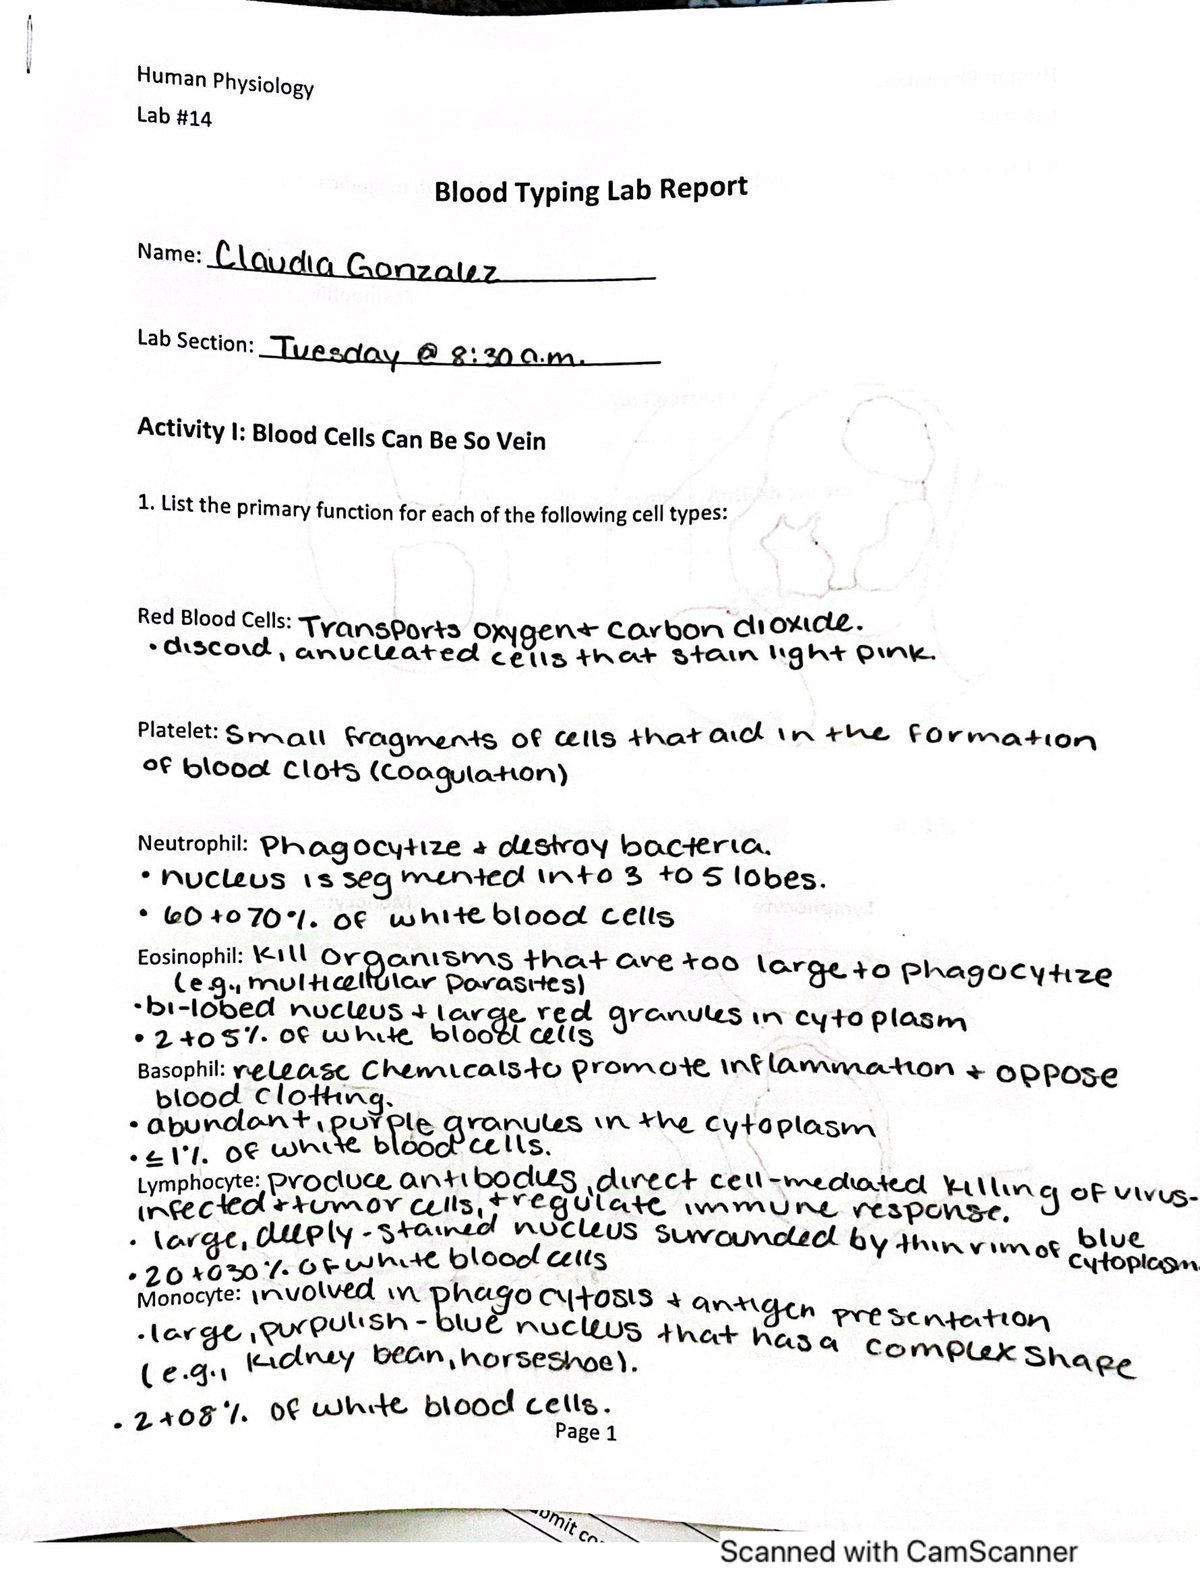 Human Physiology
Lab #14
Blood Typing Lab Report
Name: Claudia Gonzalez
Lab Section: Tuesday @ 8:30 a.m.
Activity I: Blood Cells Can Be So Vein
1. List the primary function for each of the following cell types:
Red Blood Cells: Transports oxygen + carbon dioxide.
• discoid, anucleated cells that stain light pink.
Platelet: Small fragments of cells that aid in the formation
of blood clots (coagulation)
Neutrophil: Phagocytize + destroy bacteria.
• nucleus is segmented into 3 to 5 lobes.
• 60 to 70% of white blood cells
Eosinophil: Kill organisms that are too large to phagocytize
(e.g., multicellular parasites)
• bi-lobed nucleus + large red granules in cytoplasm
• 2 to 5% of white blood cells
Basophil: release chemicals to promote inflammation + oppose
blood clotting.
• abundant, purple granules in the cytoplasm
• ≤ 1% of white blood cells.
Lymphocyte: produce antibodies, direct cell-mediated killing of virus-
infected + tumor cells, + regulate immune response.
• large, deeply-stained nucleus surrounded by thin rim of blue
cytoplasm
• 20 to 30% of white blood cells
Monocyte: involved in phagocytosis + antigen presentation
• large, purpulish-blue nucleus that has a complex shape
(e.g., kidney bean, horseshoe).
• 2 to 8% of white blood cells.
Page 1
Scanned with CamScanner